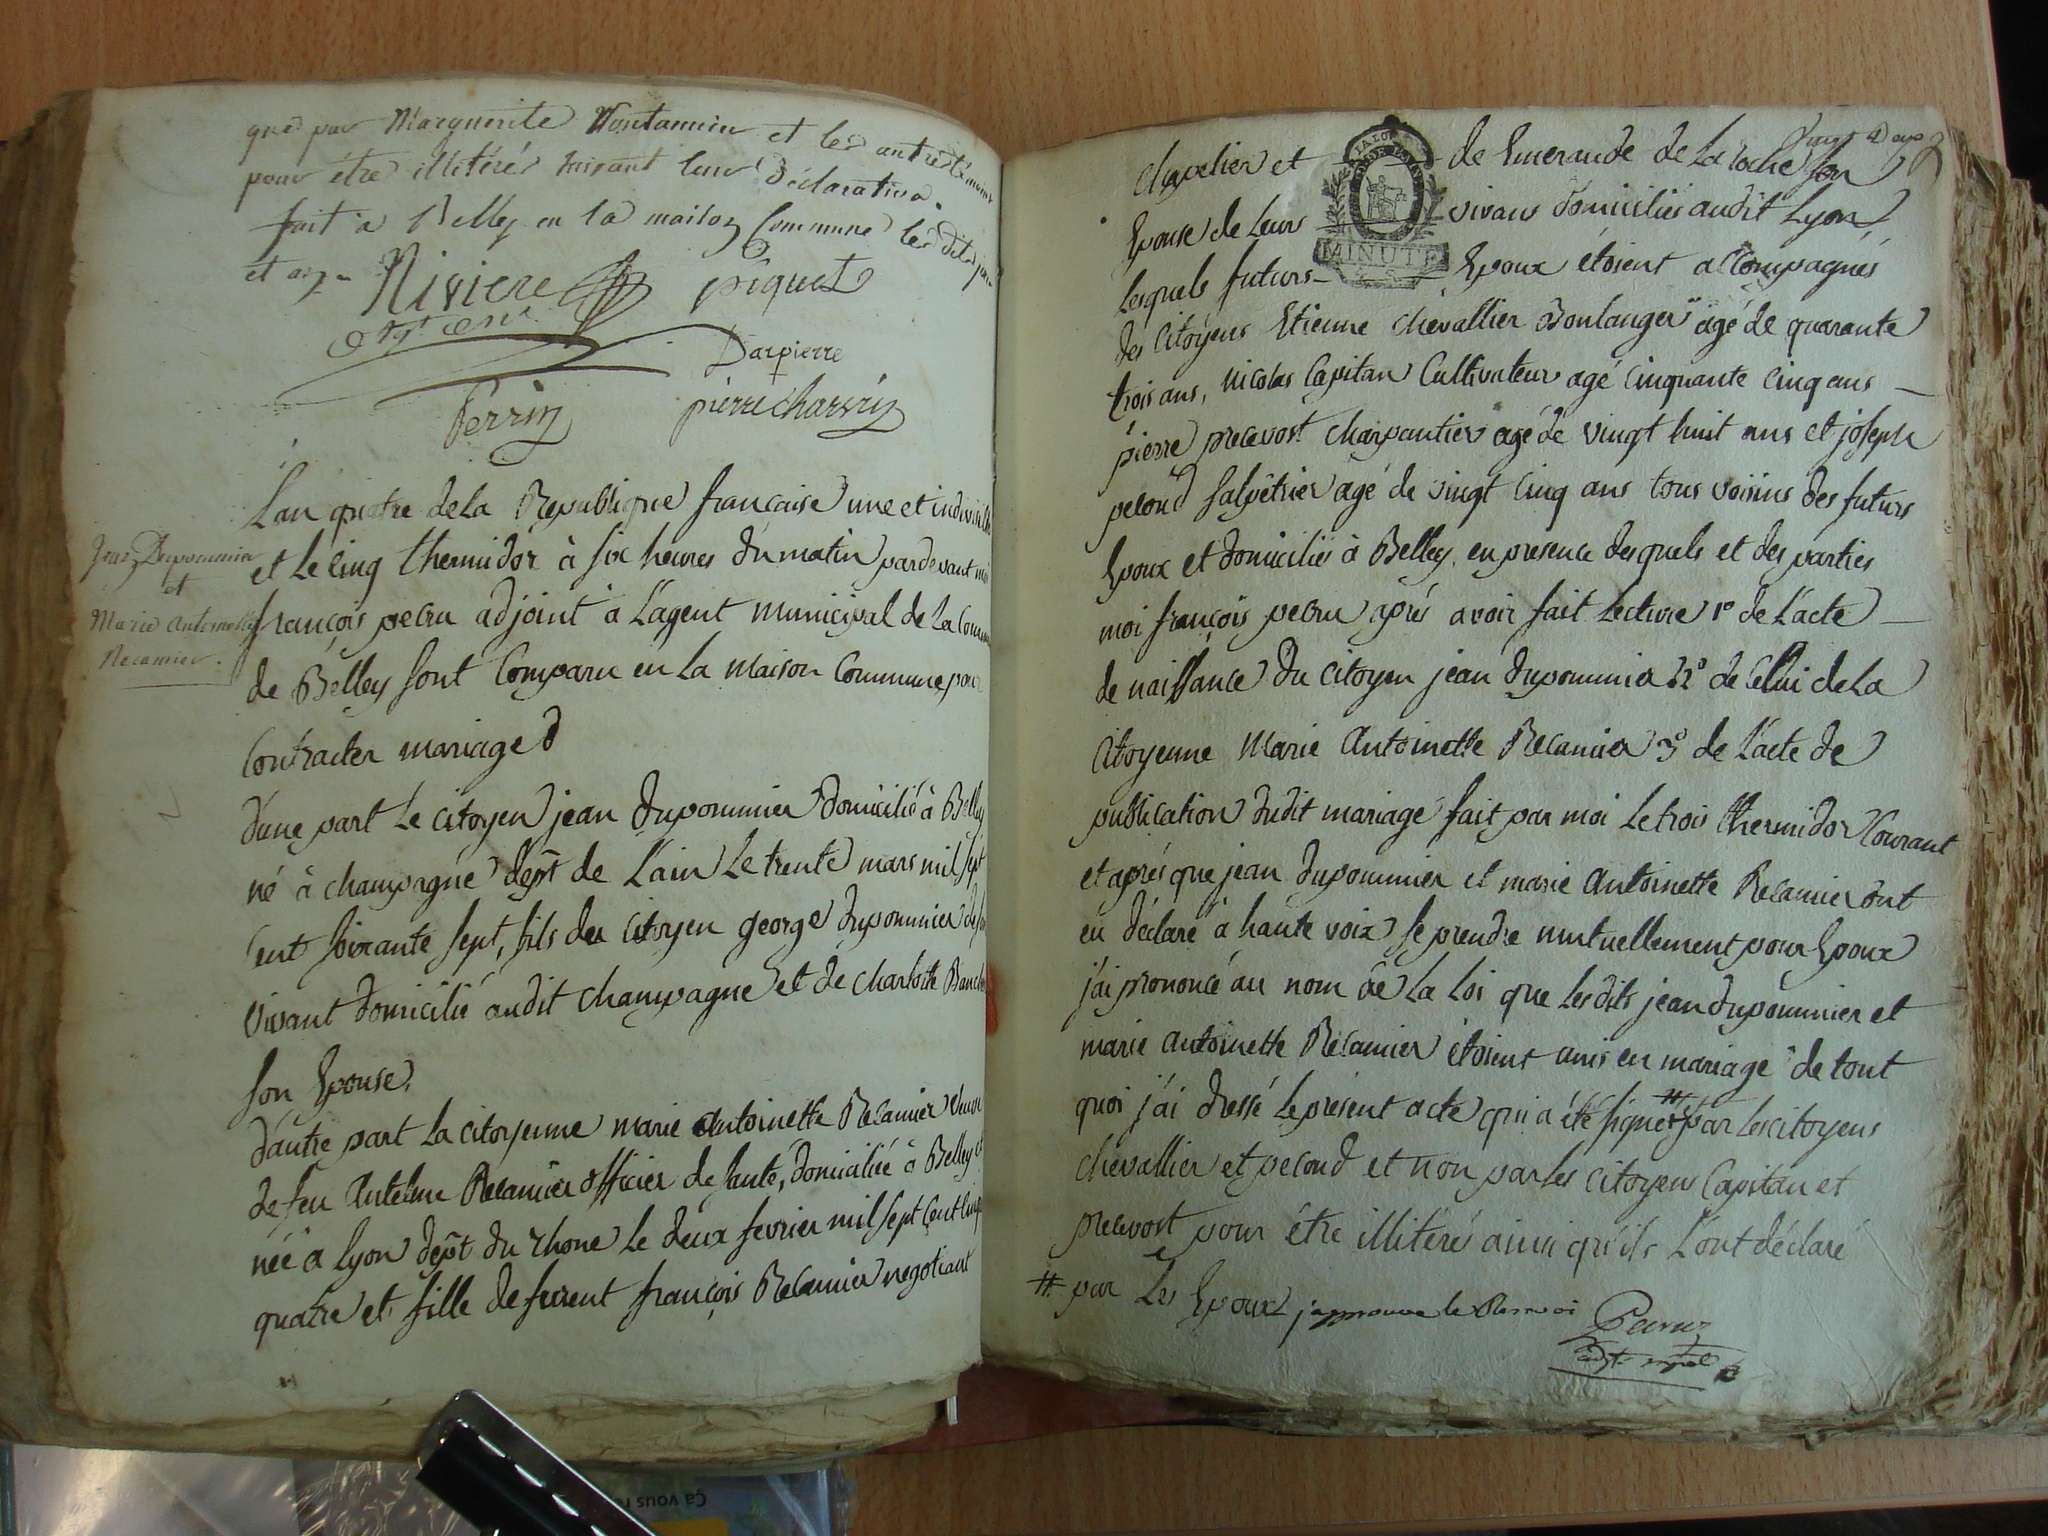 que par Marguerite Montannier et les autres témoins
pour être illitérés suivant leur déclaration.
fait à Belley en la maison Commune les dits jour
et an
Riviere piquet
agt
Darpierre
Perrin pierre charvin
L'an quatre de La Republique française une et indivisible
et Le Cinq thermidor à six heures du matin pardevant moi
françois pecru adjoint à L'agent municipal de La Commune
de Belley sont Comparu en La maison Commune pour
Contracter mariage
Jean Dupommier
et
Marie Antoinette
Recamier.
d'une part Le citoyen jean dupommier domicilié à Belley
né à champagne dept de L'ain Le trente mars mil sept
Cent soixante sept, fils du citoyen george dupommier de son
vivant domicilié audit champagne et de charlotte
son Epouse.
d'autre part La citoyenne marie antoinette Recamier veuve
de feu antelme Recamier officier de santé, domiciliée à Belley et
née à Lyon dept du rhone Le deux fevrier mil sept Cent Cinq
quatre et fille de françois Recamier negotiant
chapelier et de Emerande de La roche son
Epouse de Leurs vivans domiciliés audit Lyon,
Lesquels futurs Epoux étoient accompagnés
VALOR
MINUTE
des Citoyens Etienne chevallier Boulanger agé de quarante
trois ans, nicolas Capitan Cultivateur agé Cinquante Cinq ans
pierre precvost charpantier agé de vingt huit ans et joseph
pecoud salpêtrier agé de vingt Cinq ans tous voisins des futurs
Epoux et domiciliés à Belley, en presence desquels et des parties
moi françois pecru après avoir fait Lecture 1° de L'acte
de naissance du citoyen jean dupommier 2° de Celui de La
Citoyenne marie antoinette Recamier 3° de L'acte de
publication dudit mariage fait par moi Le trois thermidor Courant
et après que jean dupommier et marie antoinette Recamier ont
eu déclaré à haute voix se prendre mutuellement pour Epoux
j'ai prononcé au nom de La Loi que Lesdits jean dupommier et
marie antoinette Recamier étoient unis en mariage de tout
quoi j'ai dressé Le présent acte qui a été signé # par Les citoyens
chevallier et pecoud et non par Les Citoyens Capitan et
precvost pour être illitéré ainsi qu'ils L'ont déclaré
# par Les Epoux j'approuve le Renvoi Pecru
adjt mpal